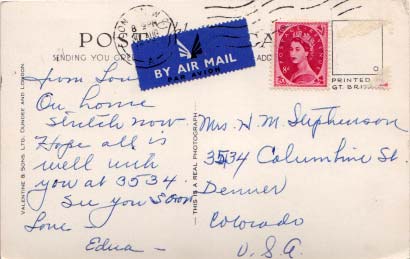 POST CARD
SENDING YOU GREE
ADD
BY AIR MAIL
PAR AVION
PRINTED
GT. BRI
VALENTINE & SONS, LTD. DUNDEE AND LONDON
THIS IS A REAL PHOTOGRAPH
From Lon
On home
stretch now
Hope all is
well with
you at 3534
See you soon
Love -
Edna -
Mrs. H. M. Stephenson
3534 Columbine St
Denver
Colorado
U.S.A.